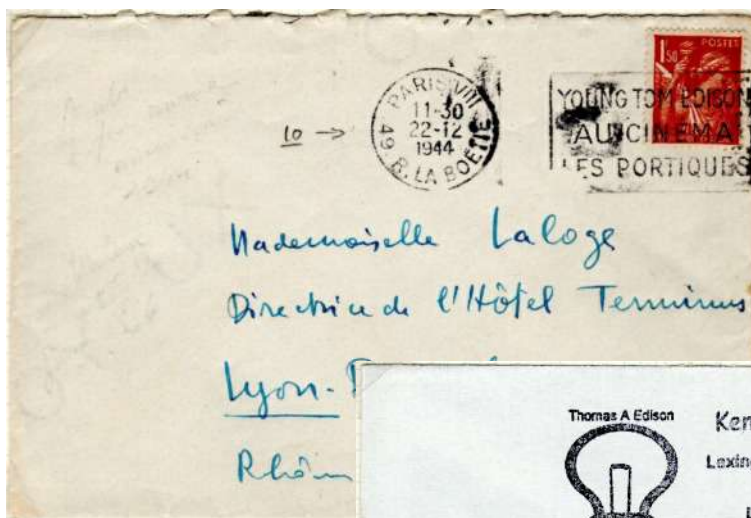 1F50
POSTES
PARIS VIII
11-30
22-12
1944
49. R. LA BOËTIE
YOUNG TOM EDISON
AU CINEMA
LES PORTIQUES
10 →
Mademoiselle Laloge
Directrice de l'Hôtel Terminus
Lyon-
Rhône
Thomas A Edison
Ken
Lexin